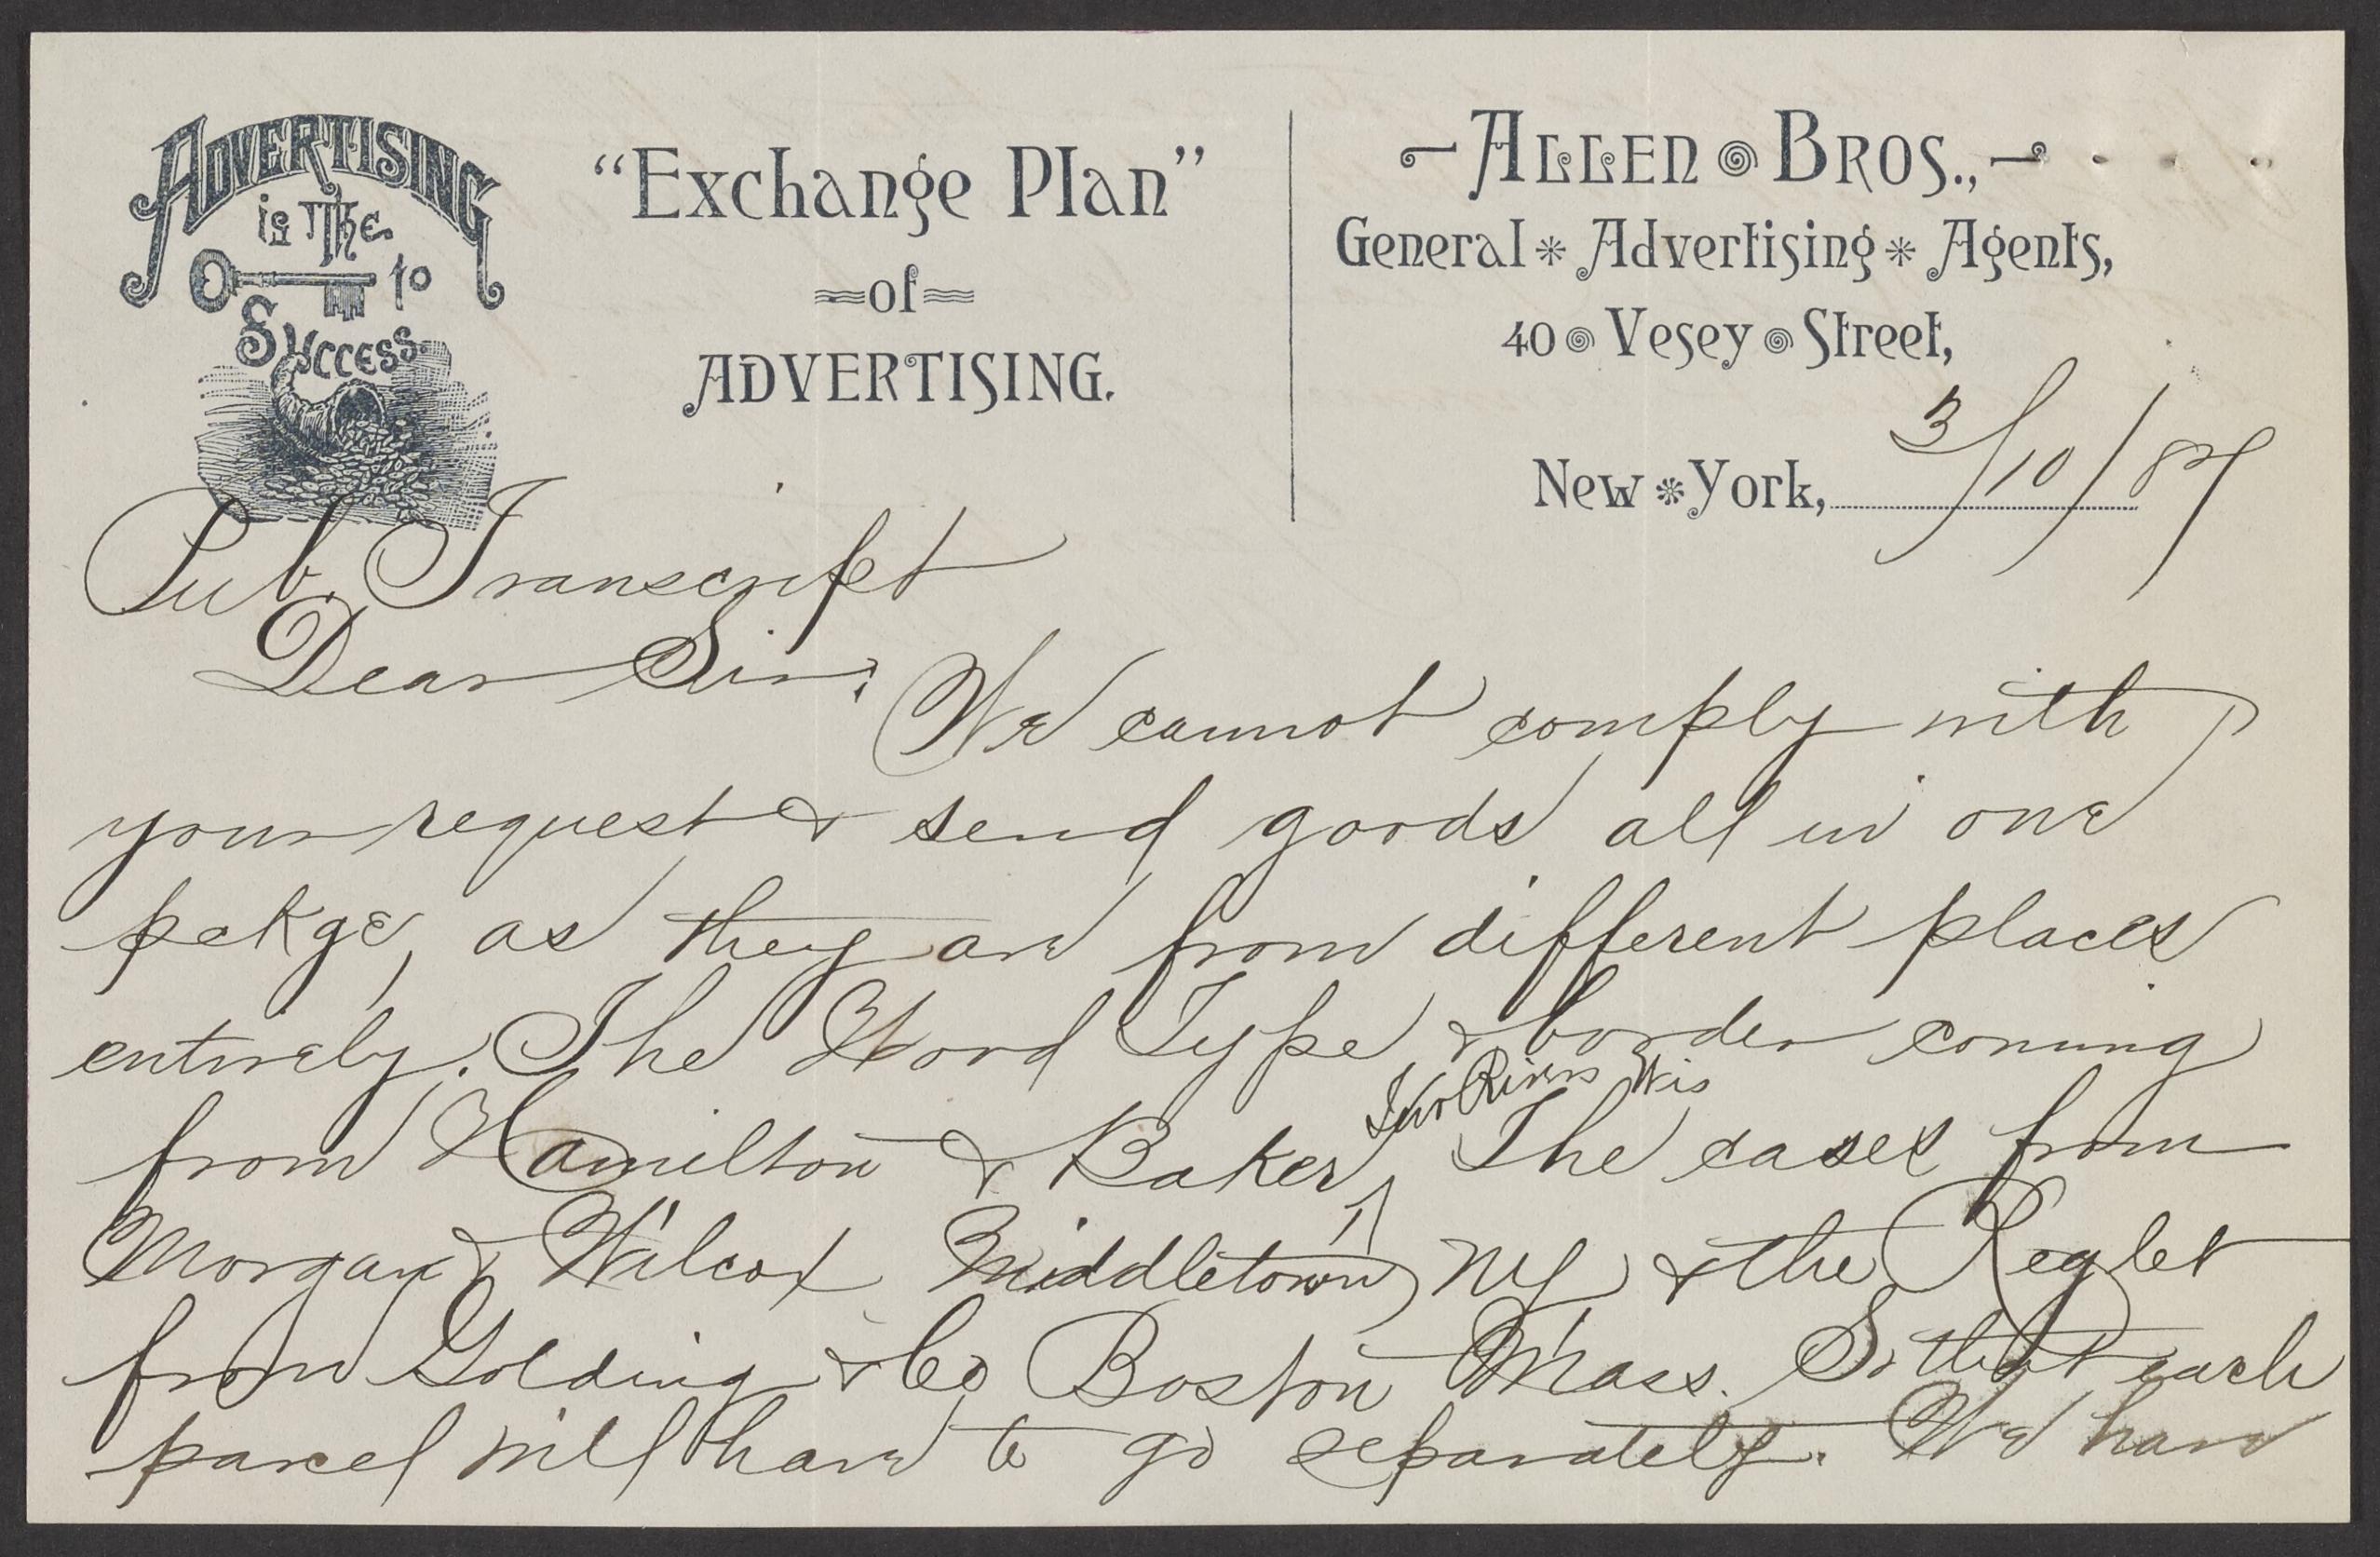 ADVERTISING
is The
to
Success.
"Exchange Plan"
of
ADVERTISING.
ALLEN BROS.,
General * Advertising * Agents,
40 Vesey Street,
New * York, 3/10/87
Pub. Transcript
Dear Sir;
We cannot comply with
your request & send goods all in one
pckge, as they are from different places
entirely. The Wood Type & border coming
from Hamilton & Baker, Two Rivers Wis The cases from
Morgan & Wilcox Middletown, NY & the Reglet
from Golding & Co Boston Mass. So that each
parcel will have to go separately. We have